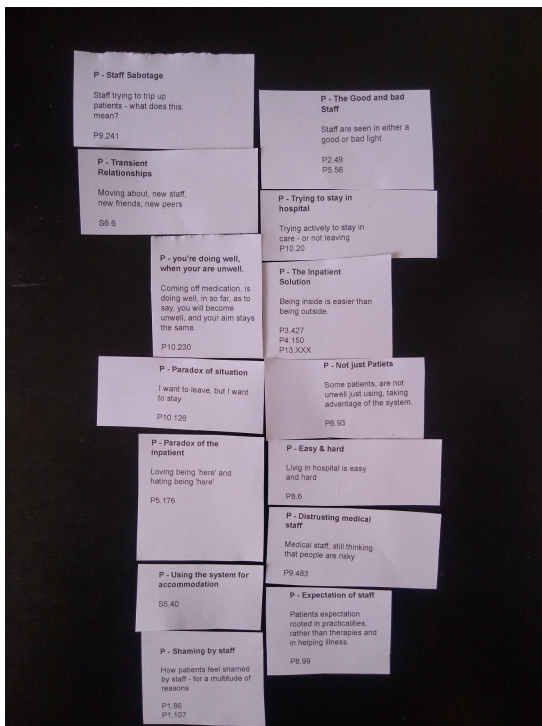 P - Staff Sabotage
Staff trying to trip up
patients - what does this
mean?
P9.241
P - Transient
Relationships
Moving about, new staff,
new friends, new peers
S6.6
P - you're doing well,
when your are unwell.
Coming off medication, is
doing well, in so far, as to
say, you will become
unwell, and your aim stays
the same.
P10.230
P - Paradox of situation
I want to leave, but I want
to stay
P10.126
P - Paradox of the
inpatient
Loving being 'here' and
hating being 'here'
P5.176
P - Using the system for
accommodation
S5.40
P - Shaming by staff
How patients feel shamed
by staff - for a multitude of
reasons
P1.86
P1.107
P - The Good and bad
Staff
Staff are seen in either a
good or bad light
P2.49
P5.56
P - Trying to stay in
hospital
Trying actively to stay in
care - or not leaving
P10.20
P - The Inpatient
Solution
Being inside is easier than
being outside.
P3.427
P4.150
P13.XXX
P - Not just Patiets
Some patients, are not
unwell just using, taking
advantage of the system.
P6.93
P - Easy & hard
Livig in hospital is easy
and hard
P8.6
P - Distrusting medical
staff
Medical staff, still thinking
that people are risky
P9.483
P - Expectation of staff
Patients expectation
rooted in practicalities,
rather than therapies and
in helping illness.
P8.99